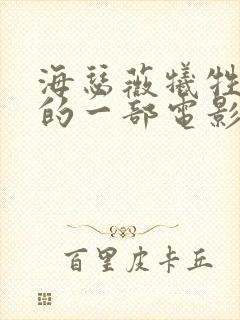 海瑟薇犧牲
的一部電影
百里皮卡丘